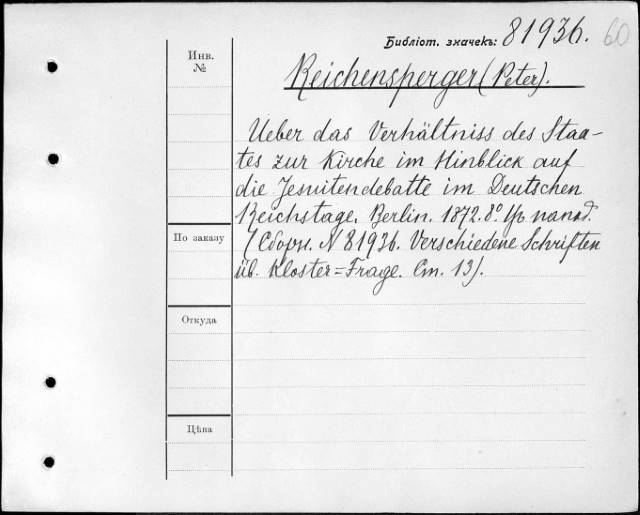 Библіот. значекъ: 81936. 60
Инв.
№
Reichensperger (Peter).
Ueber das Verhältniss des Staa-
tes zur Kirche im Hinblick auf
die Jesuitendebatte im Deutschen
Reichstage. Berlin. 1872. 8°.
По заказу
(Сборн. N 81936. Verschiedene Schriften
üb. Kloster=Frage. Ст. 13).
Откуда
Цѣна